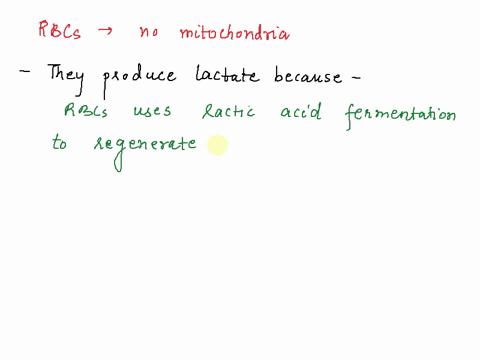 RBCs → no mitochondria
- They produce lactate because -
RBCs uses lactic acid fermentation
to regenerate